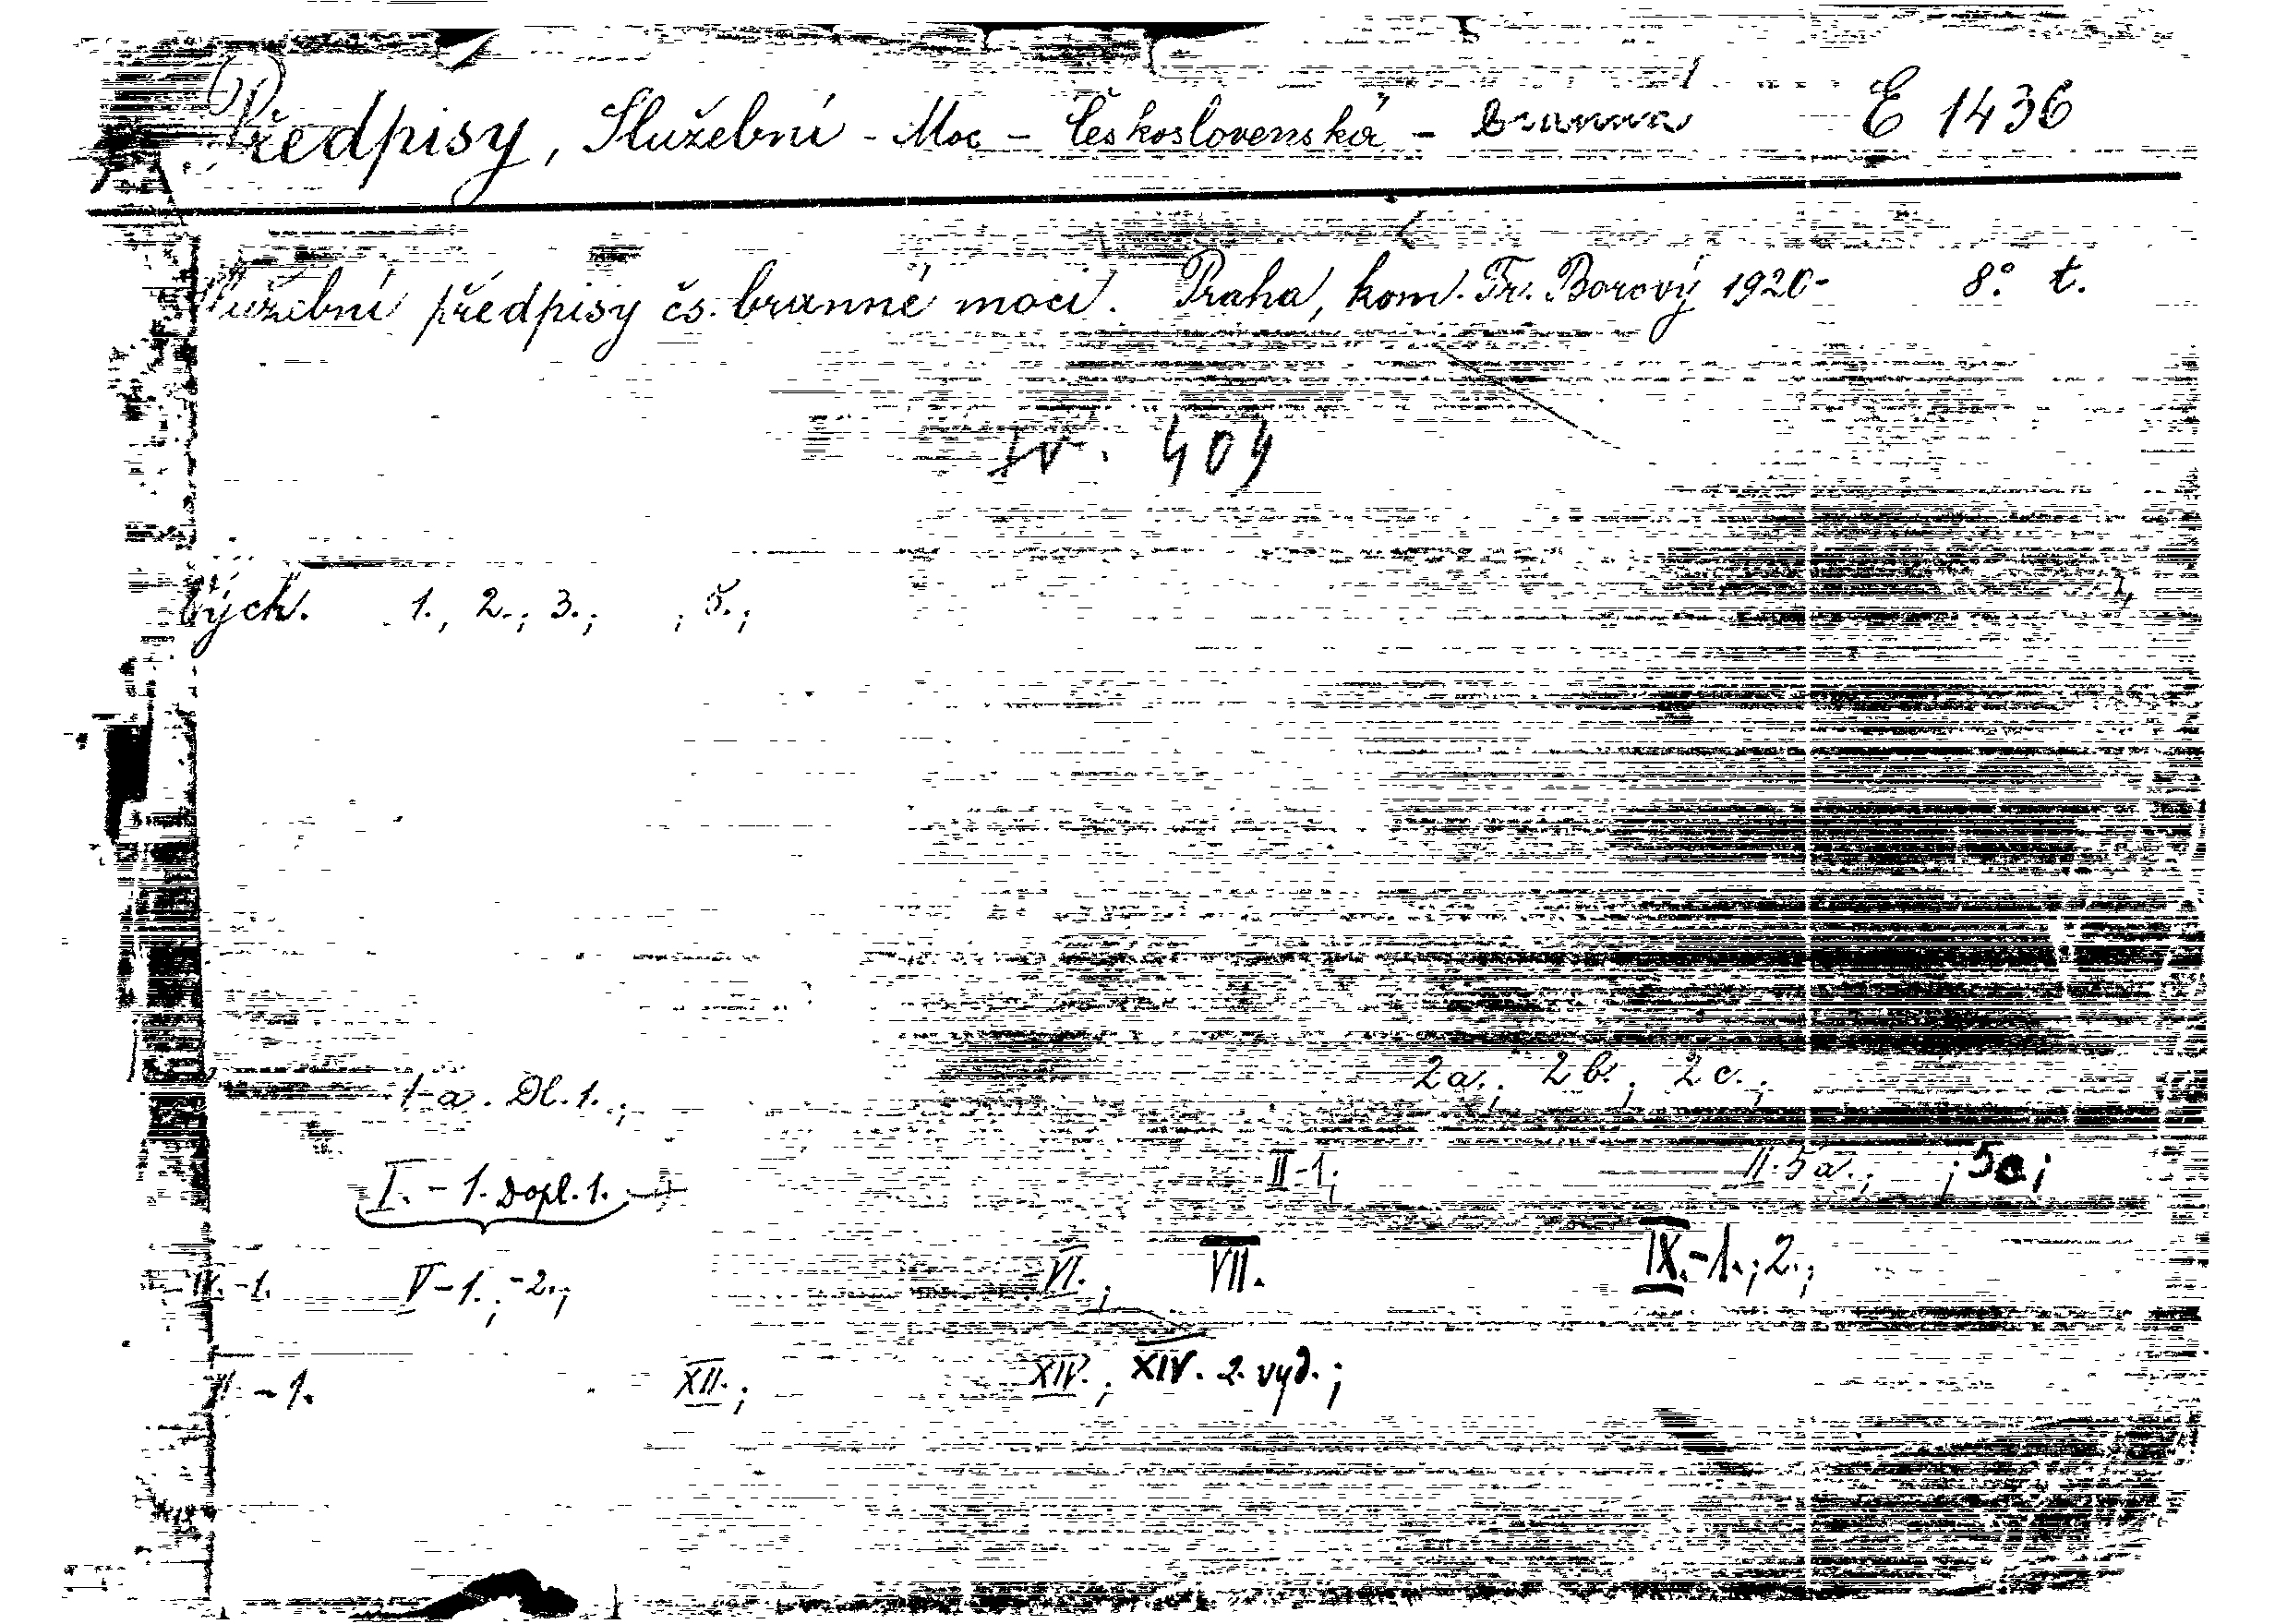 Předpisy, Služební - Moc - Československá - branná E 1436
Služební předpisy čs. branné moci. Praha, kom. Fr. Borový 1920- 8° t.
IV. 409
Vých. 1., 2.; 3.; ; 5.;
1-a. Dl. 1.; 2a.; 2b.; 2c.;
I. - 1. Dopl. 1. II-1; II-5a.; ; 5c;
IV.-1. V-1.; -2.; VI.; VII. IX.-1.; 2.;
-1. XII.; XIV.; XIV. 2. vyd.;